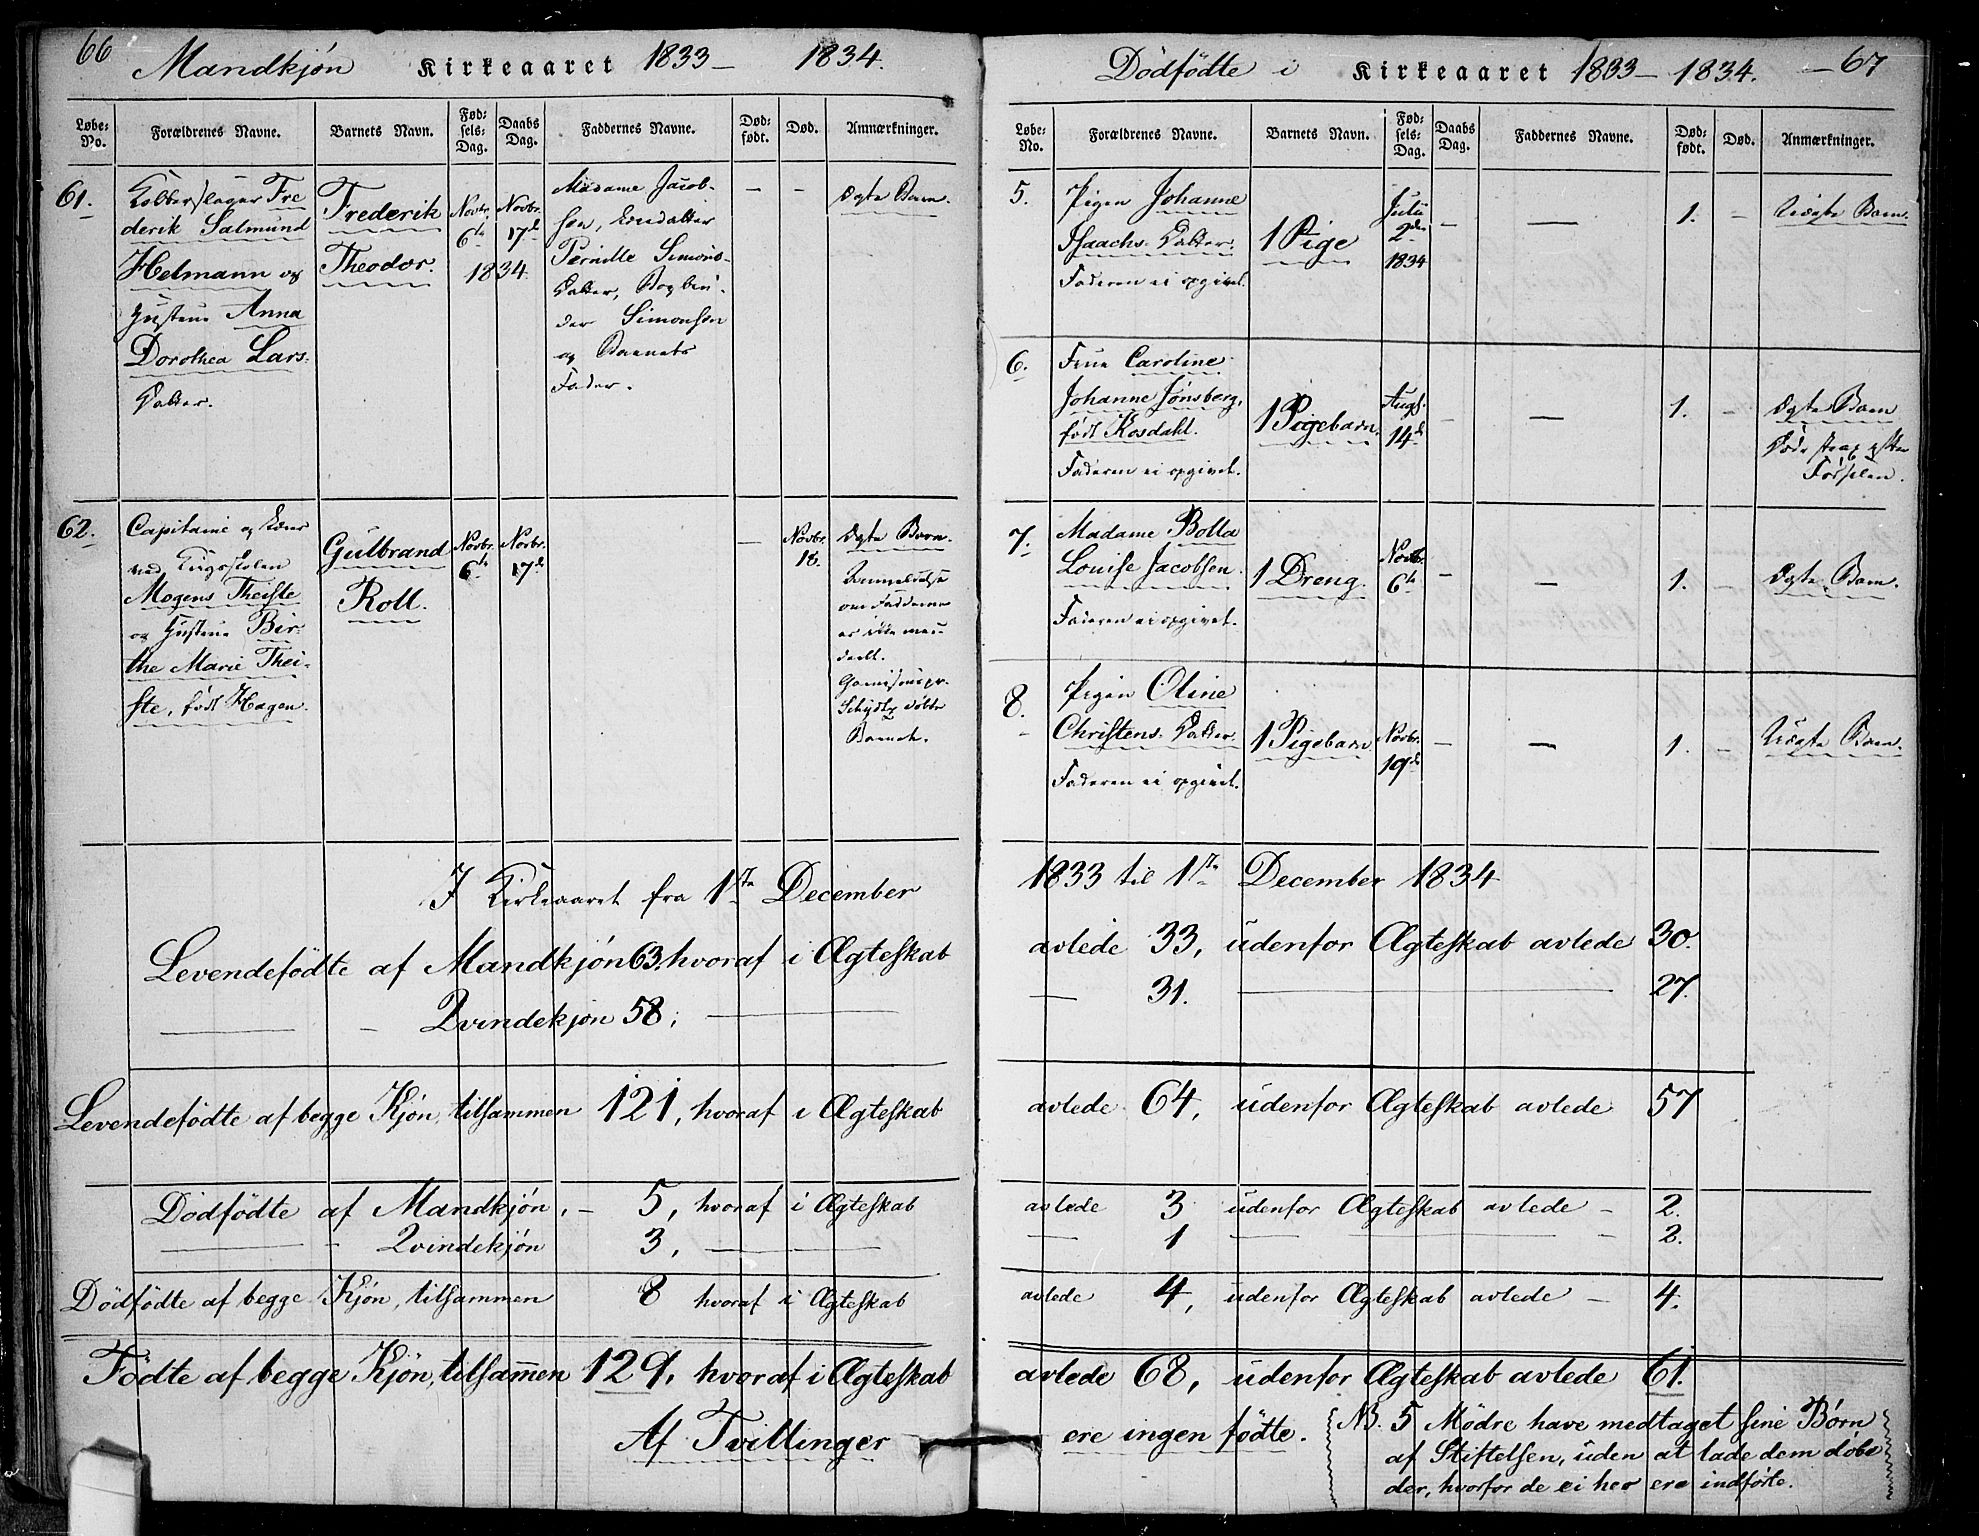 66 Mandkjøn Kirkeaaret 1833 — 1834.
Løbe-No. Forældrenes Navne. Barnets Navn. Fødsels-Dag. Daabs Dag. Faddernes Navne. Dødfødt. Død. Anmærkninger.
61. Kobberslager Fre
derik Salmund
Helmann og
Hustrue Anna
Dorothea Lars-
Datter.
Frederik
Theodor.
Novbr.
6te
Novbr.
17de
1834.
Madame Jacob-
sen,
Pernille Simons-
Datter, Bogbin-
der Simonsen
og Barnets
Fader.
— —
Ægte Barn.
62. Capitaine og
ved Krigsskolen
Mogens Theiste
og Hustrue Bir-
the Marie Thei-
ste, født Hagen.
Gulbrand
Roll.
Novbr.
6te
Novbr.
17de
—
Novbr.
18.
Ægte Barn.
Anmeldelse
om Fadderne
er ikke med-
deelt.
Garnisonspr.
Schydtz døbte
Barnet.
I Kirkeaaret fra 1ste December
Levendefødte af Mandkjøn 63, hvoraf i Ægteskab
— — Qvindekjøn 58, —
Levendefødte af begge Kjøn, tilsammen 121, hvoraf i Ægteskab
Dödfödte af Mandkjøn, — 5, hvoraf i Ægteskab
— — Qvindekjøn 3, —
Dödfödte af begge Kjøn, tilsammen 8 hvoraf i Ægteskab
Födte af begge Kjøn, tilsam̄en 129, hvoraf i Ægteskab
Af Tvillinger
Dödfödte i Kirkeaaret 1833 — 1834. — 67
Løbe-No. Forældrenes Navne. Barnets Navn. Fødsels-Dag. Daabs Dag. Faddernes Navne. Dødfødt. Død. Anmærkninger.
5. Pigen Johanne
Isaachs-Datter.
Faderen ei opgivet.
1 Pige
Julii
2den
1834
— — 1. —
Uægte Barn.
6. Frue Caroline
Johanne Jönsberg,
født Rosdahl.
Faderen ei opgivet.
1 Pigebarn.
Augs.
14de
— — 1. —
Ægte Barn
Døde strax efter
Fødselen.
7. Madame Bolla
Louise Jacobsen.
Faderen ei opgivet.
1 Dreng.
Novbr.
6te
— — 1. —
Ægte Barn.
8. Pigen Oline
Christens-Datter.
Faderen ei opgivet.
1 Pigebarn
Novbr.
19de
— — 1. —
Uægte Barn.
1833 til 1ste December 1834
avlede 33, udenfor Ægteskab avlede 30.
— 31. — 27.
avlede 64, udenfor Ægteskab avlede 57
avlede 3 udenfor Ægteskab avlede — 2.
— 1 — 2.
avlede 4, udenfor Ægteskab avlede — 4.
avlede 68, udenfor Ægteskab avlede 61.
ere ingen födte.
NB. 5 Mödre have medtaget sine Børn
af Stiftelsen, uden at lade dem döbe
der, hvorfor de ei her ere indførte.